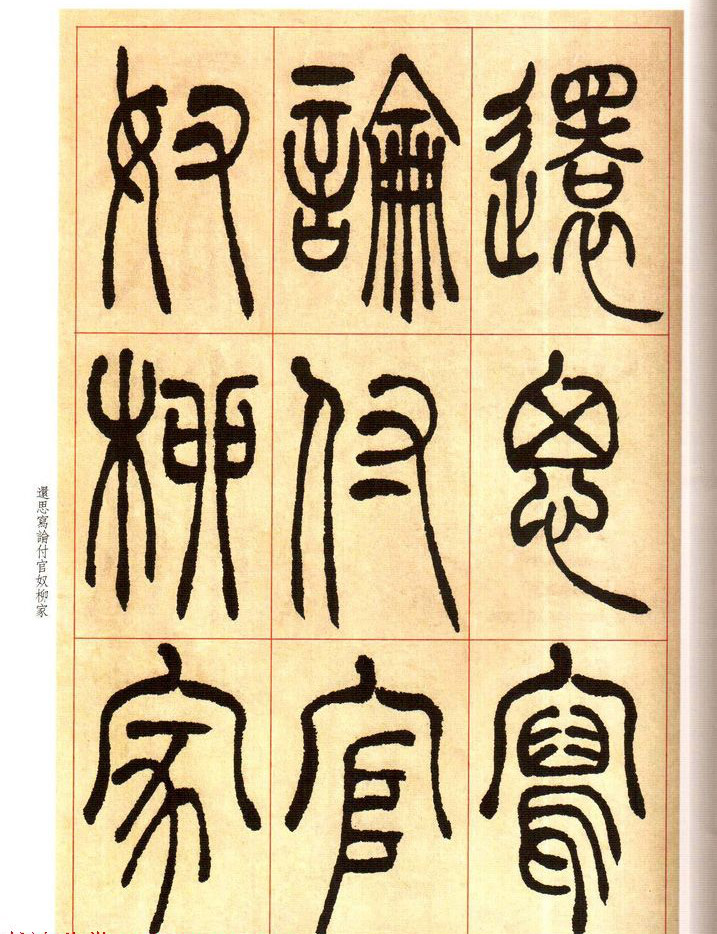 還思寫
論付官
奴柳家
還思寫論付官奴柳家